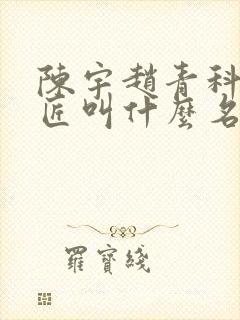 陳宇趙青科
匠叫什麼名
羅寶綫